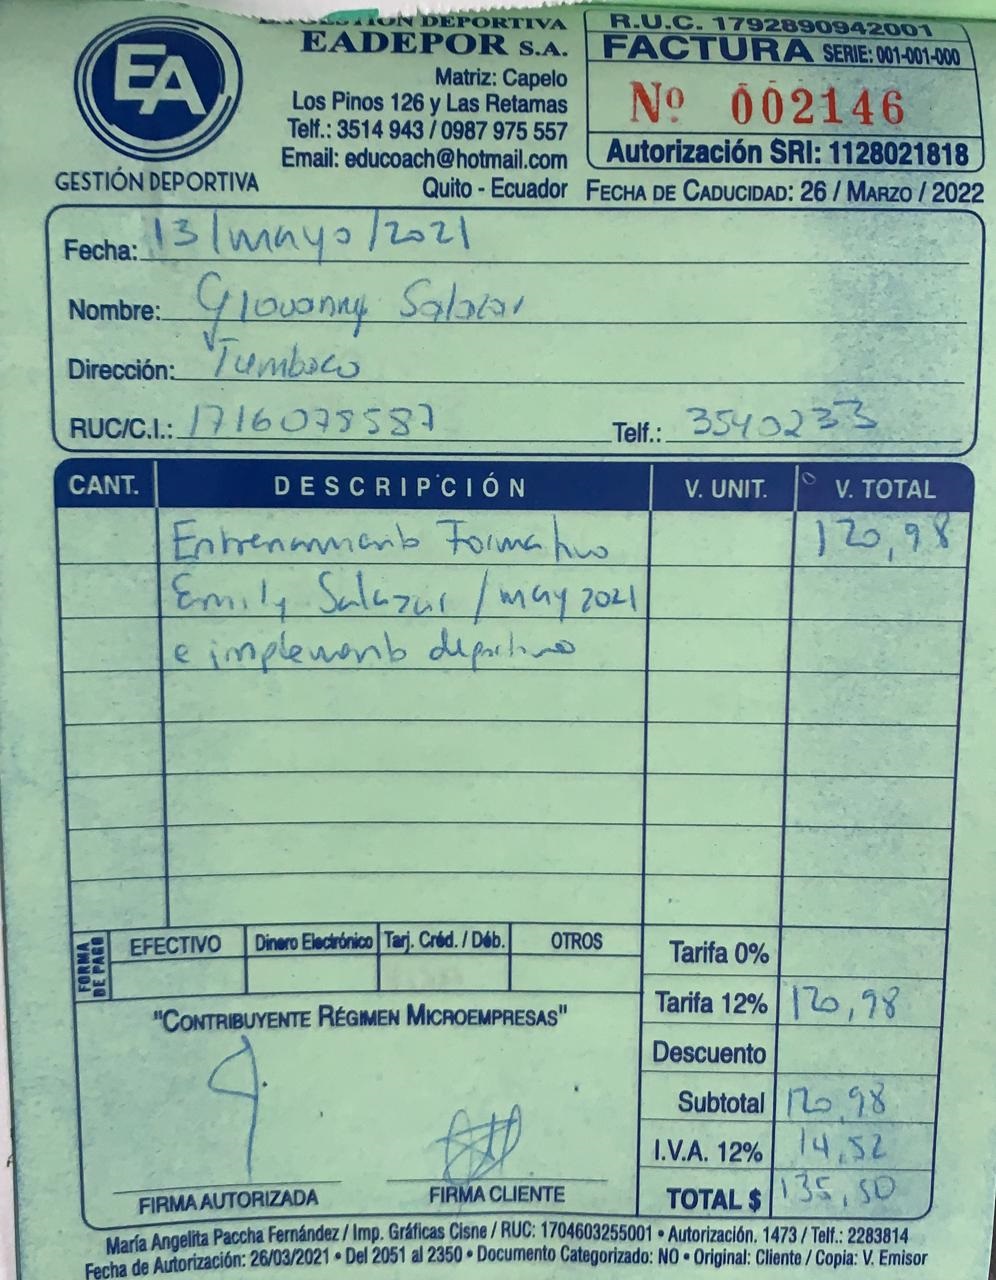 EA
GESTIÓN DEPORTIVA
GESTIÓN DEPORTIVA
EADEPOR S.A.
Matriz: Capelo
Los Pinos 126 y Las Retamas
Telf.: 3514 943 / 0987 975 557
Email: educoach@hotmail.com
Quito - Ecuador
R.U.C. 1792890942001
FACTURA SERIE: 001-001-000
Nº 002146
Autorización SRI: 1128021818
FECHA DE CADUCIDAD: 26 / MARZO / 2022
Fecha: 13/mayo/2021
Nombre: Giovanny Salazar
Dirección: Tumbaco
RUC/C.I.: 1716078587 Telf.: 3540233
CANT. DESCRIPCIÓN V. UNIT. V. TOTAL
Entrenamiento Formativo 120,98
Emily Salazar / may 2021
e implemento deportivo
FORMA DE PAGO EFECTIVO Dinero Electrónico Tarj. Créd. / Déb. OTROS
Tarifa 0%
Tarifa 12% 120,98
"CONTRIBUYENTE RÉGIMEN MICROEMPRESAS"
Descuento
Subtotal 120,98
I.V.A. 12% 14,52
TOTAL $ 135,50
FIRMA AUTORIZADA FIRMA CLIENTE
María Angelita Paccha Fernández / Imp. Gráficas Cisne / RUC: 1704603255001 • Autorización. 1473 / Telf.: 2283814
Fecha de Autorización: 26/03/2021 • Del 2051 al 2350 • Documento Categorizado: NO • Original: Cliente / Copia: V. Emisor